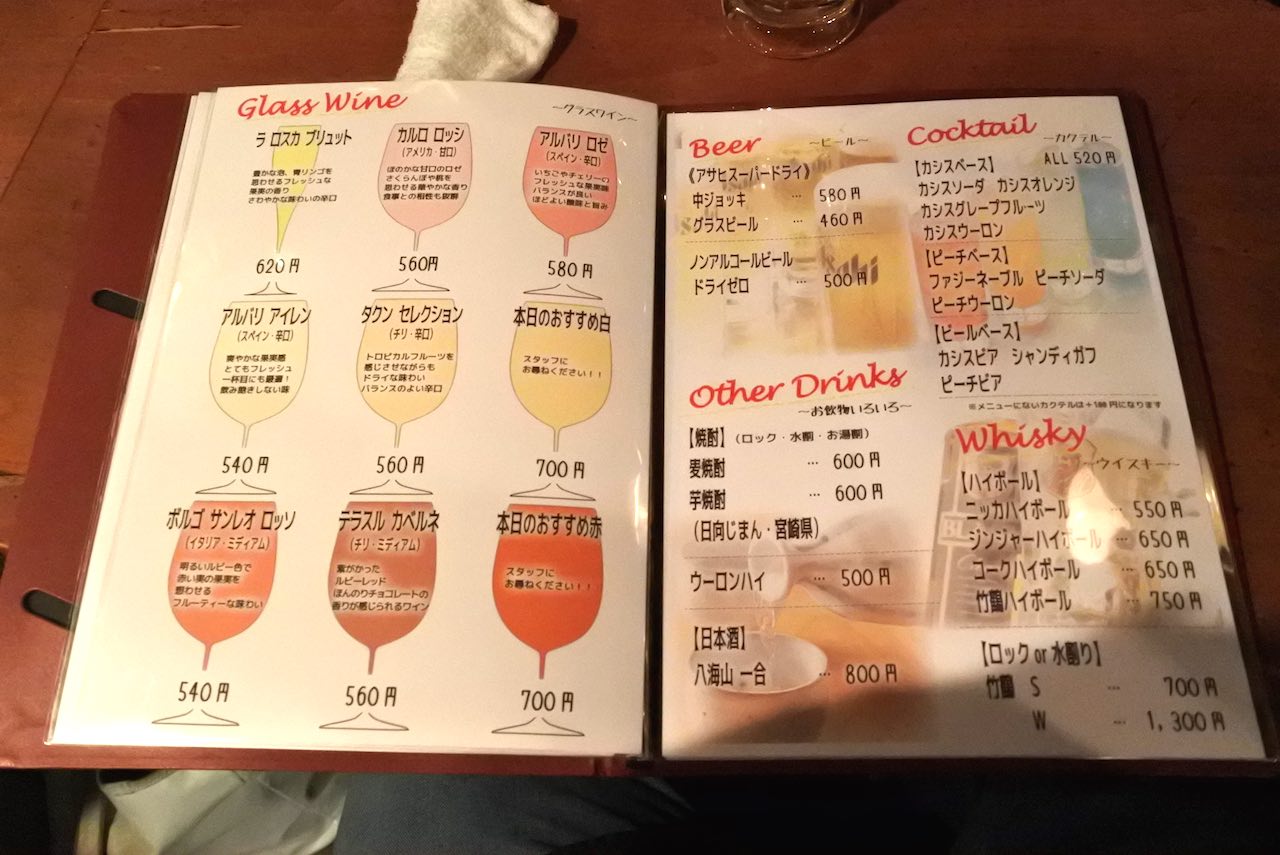 Glass Wine
～グラスワイン～
ラ ロスカ ブリュット
豊かな泡、青リンゴを
思わせるフレッシュな
果実の香り
さわやかな味わいの辛口
620円
カルロ ロッシ
(アメリカ・甘口)
ほのかな甘口のロゼ
さくらんぼや桃を
思わせる華やかな香り
食事との相性も抜群
560円
アルバリ ロゼ
(スペイン・辛口)
いちごやチェリーの
フレッシュな果実味
バランスが良い
ほどよい酸味と旨み
580円
アルバリ アイレン
(スペイン・辛口)
爽やかな果実感
とてもフレッシュ
一杯目にも最適！
飲み飽きしない味
540円
タクン セレクション
(チリ・辛口)
トロピカルフルーツを
感じさせながらも
ドライな味わい
バランスのよい辛口
560円
本日のおすすめ白
スタッフに
お尋ねください！！
700円
ボルゴ サンレオ ロッソ
(イタリア・ミディアム)
明るいルビー色で
赤い実の果実を
思わせる
フルーティーな味わい
540円
テラスル カベルネ
(チリ・ミディアム)
紫がかった
ルビーレッド
ほんのりチョコレートの
香りが感じられるワイン
560円
本日のおすすめ赤
スタッフに
お尋ねください！！
700円
Beer
～ビール～
《アサヒスーパードライ》
中ジョッキ … 580円
グラスビール … 460円
ノンアルコールビール
ドライゼロ … 500円
Other Drinks
～お飲物いろいろ～
【焼酎】(ロック・水割・お湯割)
麦焼酎 … 600円
芋焼酎 … 600円
(日向じまん・宮崎県)
ウーロンハイ … 500円
【日本酒】
八海山 一合 … 800円
Cocktail
～カクテル～
【カシスベース】 ALL 520円
カシスソーダ カシスオレンジ
カシスグレープフルーツ
カシスウーロン
【ピーチベース】
ファジーネーブル ピーチソーダ
ピーチウーロン
【ビールベース】
カシスビア シャンディガフ
ピーチビア
※メニューにないカクテルは＋100円になります
Whisky
～ウイスキー～
【ハイボール】
ニッカハイボール … 550円
ジンジャーハイボール … 650円
コークハイボール … 650円
竹鶴ハイボール … 750円
【ロック or 水割り】
竹鶴 S … 700円
W … 1,300円